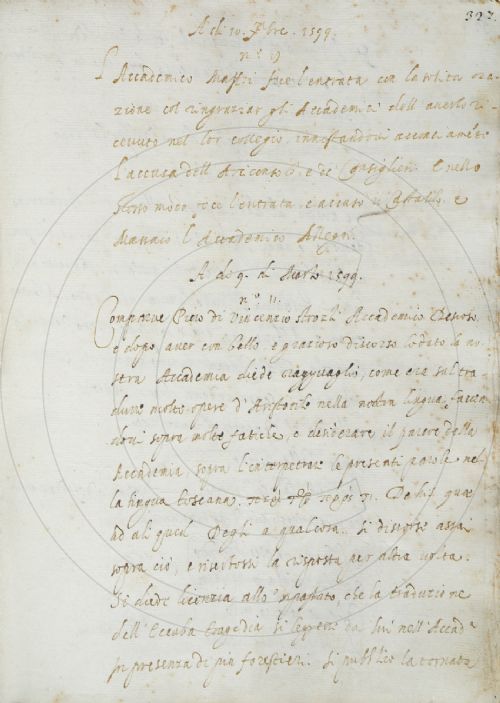 327
A di 10. Xbre. 1599.
n.o 9
L Accademico Mastri fece l'entrata con la solita ora
zione col ringraziar gli Accademici dell'averlo ri
cevuto nel lor collegio innestandovi ancora
l'accusa dell' e de Consiglieri. E nello
stesso modo fece l'entrata, e accusò e
l'Accademico Allegri.
A dì 9. di Marzo 1599.
n.o 11.
Comparve Piero di Vincenzio Accademico
e dopo aver con bello e grazioso discorso lodato la no
stra Accademia diede ragguaglio, come era sul tra
durre molte opere d'Aristotile nella nostra lingua, faccen
dovi sopra molte fatiche, e desiderare il parere della
Accademia sopra l'interpretrar le presenti parole nel
la lingua toscana,
ad aliquid Degli a qualcosa. Si discorse assai
sopra ciò, e riserbossi la risposta per altra volta.
Si diede licenzia allo che la traduzione
dell'Ecuba tragedia si leggesse da lui nell'Accad.a
in presenza di più forestieri. Si pubblicò la tornata